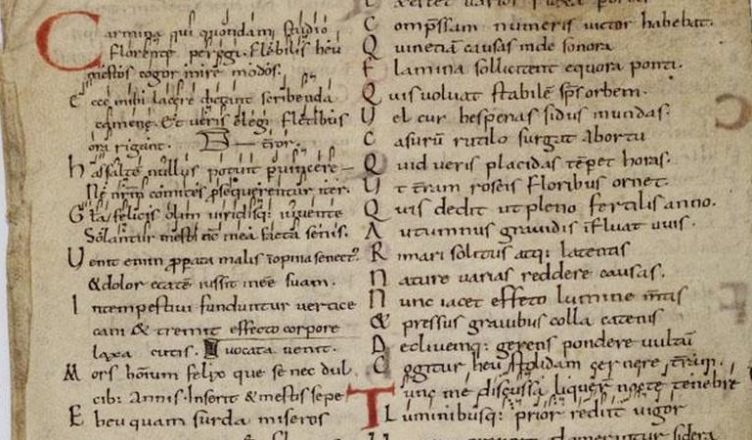 Carmina qui quondam studio
florente peregi. flebilis heu
męstos cogor inire modos.
Ecce mihi lacere dictant scribenda
camenę. Et veris elegi fletibus
ora rigant.
has saltē nullus potuit pvincere
Ne nrm̄ comites psequerentur iter.
Gla felicis olim viridisq; iuvente
Solantur mesti nc mea facta senis.
Venit enim pperata malis inopina senect
& dolor etatē iussit inēe suam.
Intempestivi funduntur vertice
cani & tremit effecto corpore
laxa cutis. vocata venit.
Mors hoīum felix que se nec dul
cib; Annis. Inserit & mestis sepe
Eheu quam surda miseros
Compssam numeris victor habebat.
Quinetiā causas unde sonora
Flamina sollicitent equora ponti.
Quis voluat stabilē sps orbem.
Vel cur hesperias sidus in undas.
Casurū rutilo surgat abortu
Quid veris placidas tēpet horas.
Vt tram roseis floribus ornet.
Quis dedit ut pleno fertilis anno.
Autumnus gravidis īfluat uvis.
Rimari solitus atq; latentis
Nature varias reddere causas.
Nunc iacet effeto lumine mtis
& pressus gravibus colla catenis
Declivemq; gerens pondere vultū
Cogitur heu stolidam cernere tram.
Tunc me discussa liquer nocte tenebre
Luminibusq; prior rediit vigor